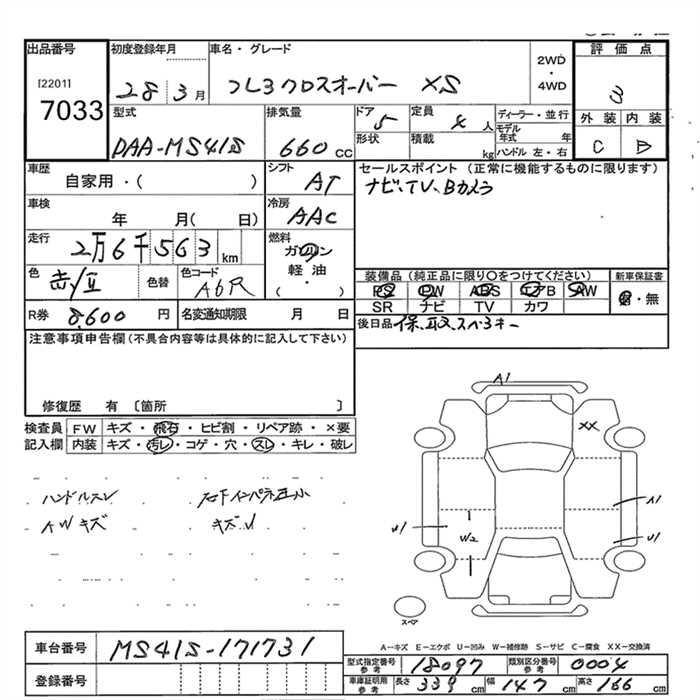 出品番号 初度登録年月 車名・グレード 評価点
[2201]
7033
28 3月 フレアクロスオーバー XS
2WD
・
4WD
3
型式 排気量 ドア 定員 ディーラー・並行 外装 内装
DAA-MS41S 660 CC 5 4人 モデル年式 年 C B
形状 積載 kg ハンドル 左・右
車歴 シフト セールスポイント(正常に機能するものに限ります)
自家用・( ) AT ナビ、TV、Bカメラ
車検 冷房
年 月( 日) AAC
走行 燃料
2万6千563km ガソリン
軽油
( ・ )
色 色替 色コード 装備品(純正品に限り○をつけてください) 新車保証書
A6R PS PW ABS エアB AW 有・無
SR ナビ TV カワ
R券 8,600円 名変通知期限 月 日 後日品 保、取、スペアキー
注意事項申告欄(不具合内容等は具体的に記入して下さい)
修復歴 有〔箇所 〕
検査員 FW キズ・飛石・ヒビ割・リペア跡・×要
記入欄 内装 キズ・汚レ・コゲ・穴・スレ・キレ・破レ
ハンドルスレ
AWキズ キズ
A1
XX
A1
U1 W2 U1
スペア
A−キズ E−エクボ U−凹み W−補修跡 S−サビ C−腐食 XX−交換済
車台番号 MS41S-171731
型式指定番号 参考 18097 類別区分番号 参考 0004
登録番号
車庫証明用 参考 長さ 339cm 幅 147cm 高さ 166cm